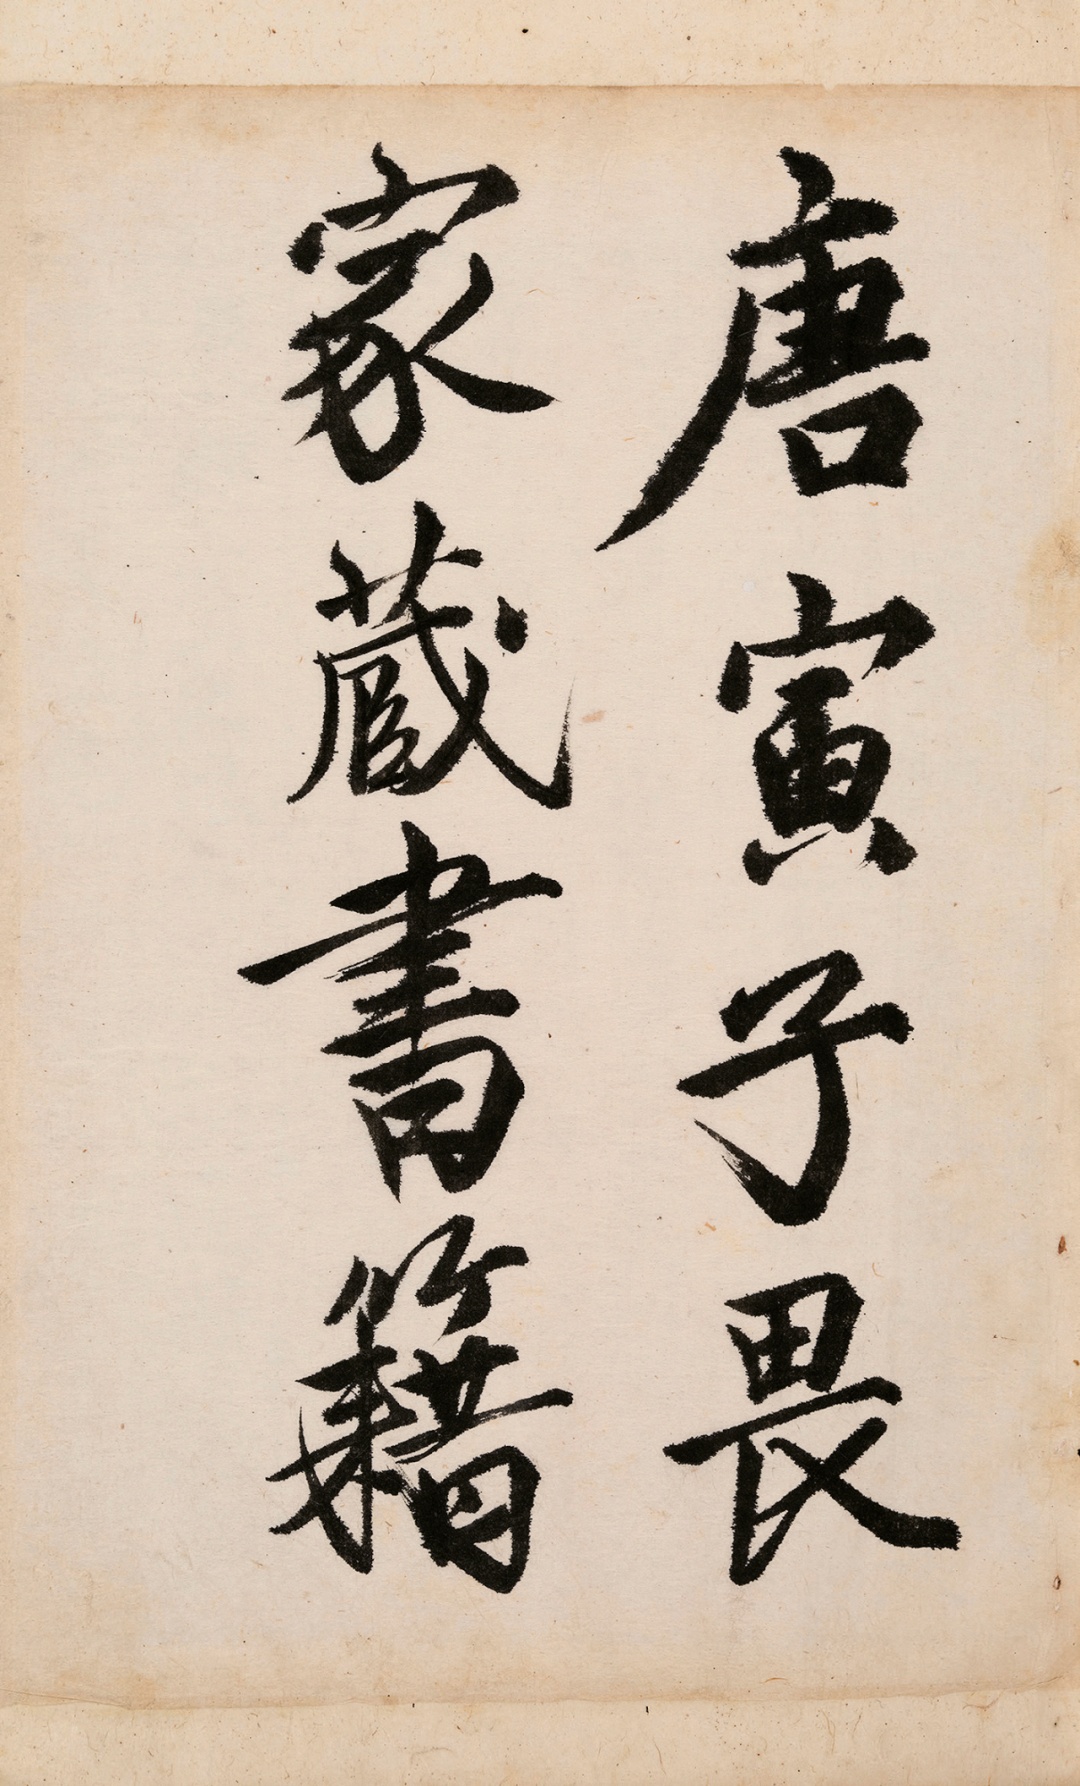 唐寅子畏
家藏書籍